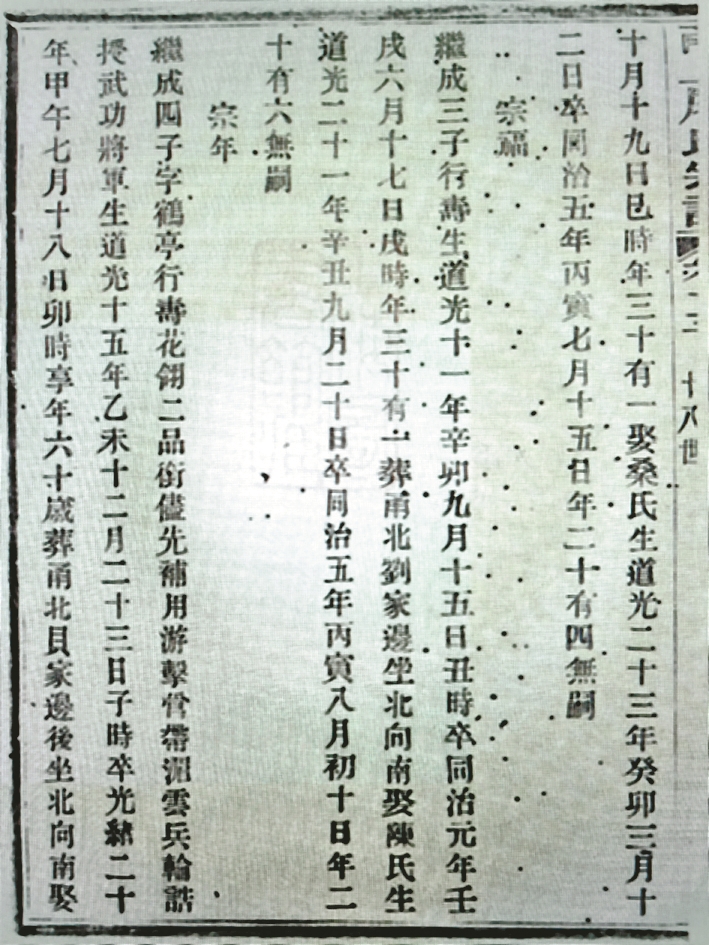 十八世
十月十九日巳時年三十有一娶桑氏生道光二十三年癸卯三月十
二日卒同治五年丙寅七月十五日年二十有四無嗣
宗福
繼成三子行壽生道光十一年辛卯九月十五日丑時卒同治元年壬
戌六月十七日戌時年三十有一葬甬北劉家邊坐北向南娶陳氏生
道光二十一年辛丑九月二十日卒同治五年丙寅八月初十日年二
十有六無嗣
宗年
繼成四子字鶴亭行壽花翎二品銜儘先補用游擊管帶湄雲兵輪誥
授武功將軍生道光十五年乙未十二月二十三日子時卒光緒二十
年甲午七月十八日卯時享年六十歲葬甬北貝家邊後坐北向南娶